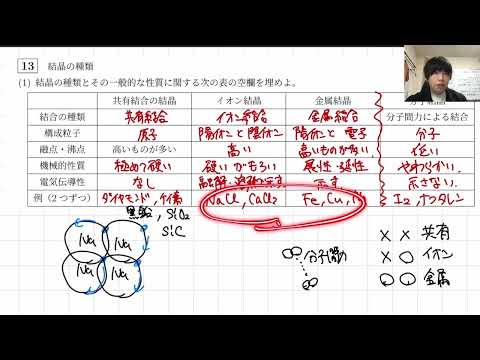 13 結晶の種類
(1) 結晶の種類とその一般的な性質に関する次の表の空欄を埋めよ。
共有結合の結晶 イオン結晶 金属結晶
結合の種類 共有結合 イオン結合 金属結合 分子間力による結合
構成粒子 原子 陽イオンと陰イオン 陽イオンと電子 分子
融点・沸点 高いものが多い 高い 高いものが多い 低い
機械的性質 極めて硬い 硬いがもろい 展性・延性 やわらかい
電気伝導性 なし 示す 示さない
例(2つずつ) ダイヤモンド,ケイ素 NaCl, CaCl2 Fe, Cu, I2,ナフタレン
黒鉛, SiO2
SiC
Na Na
Na Na
分子間力
× × 共有
× ○ イオン
○ ○ 金属